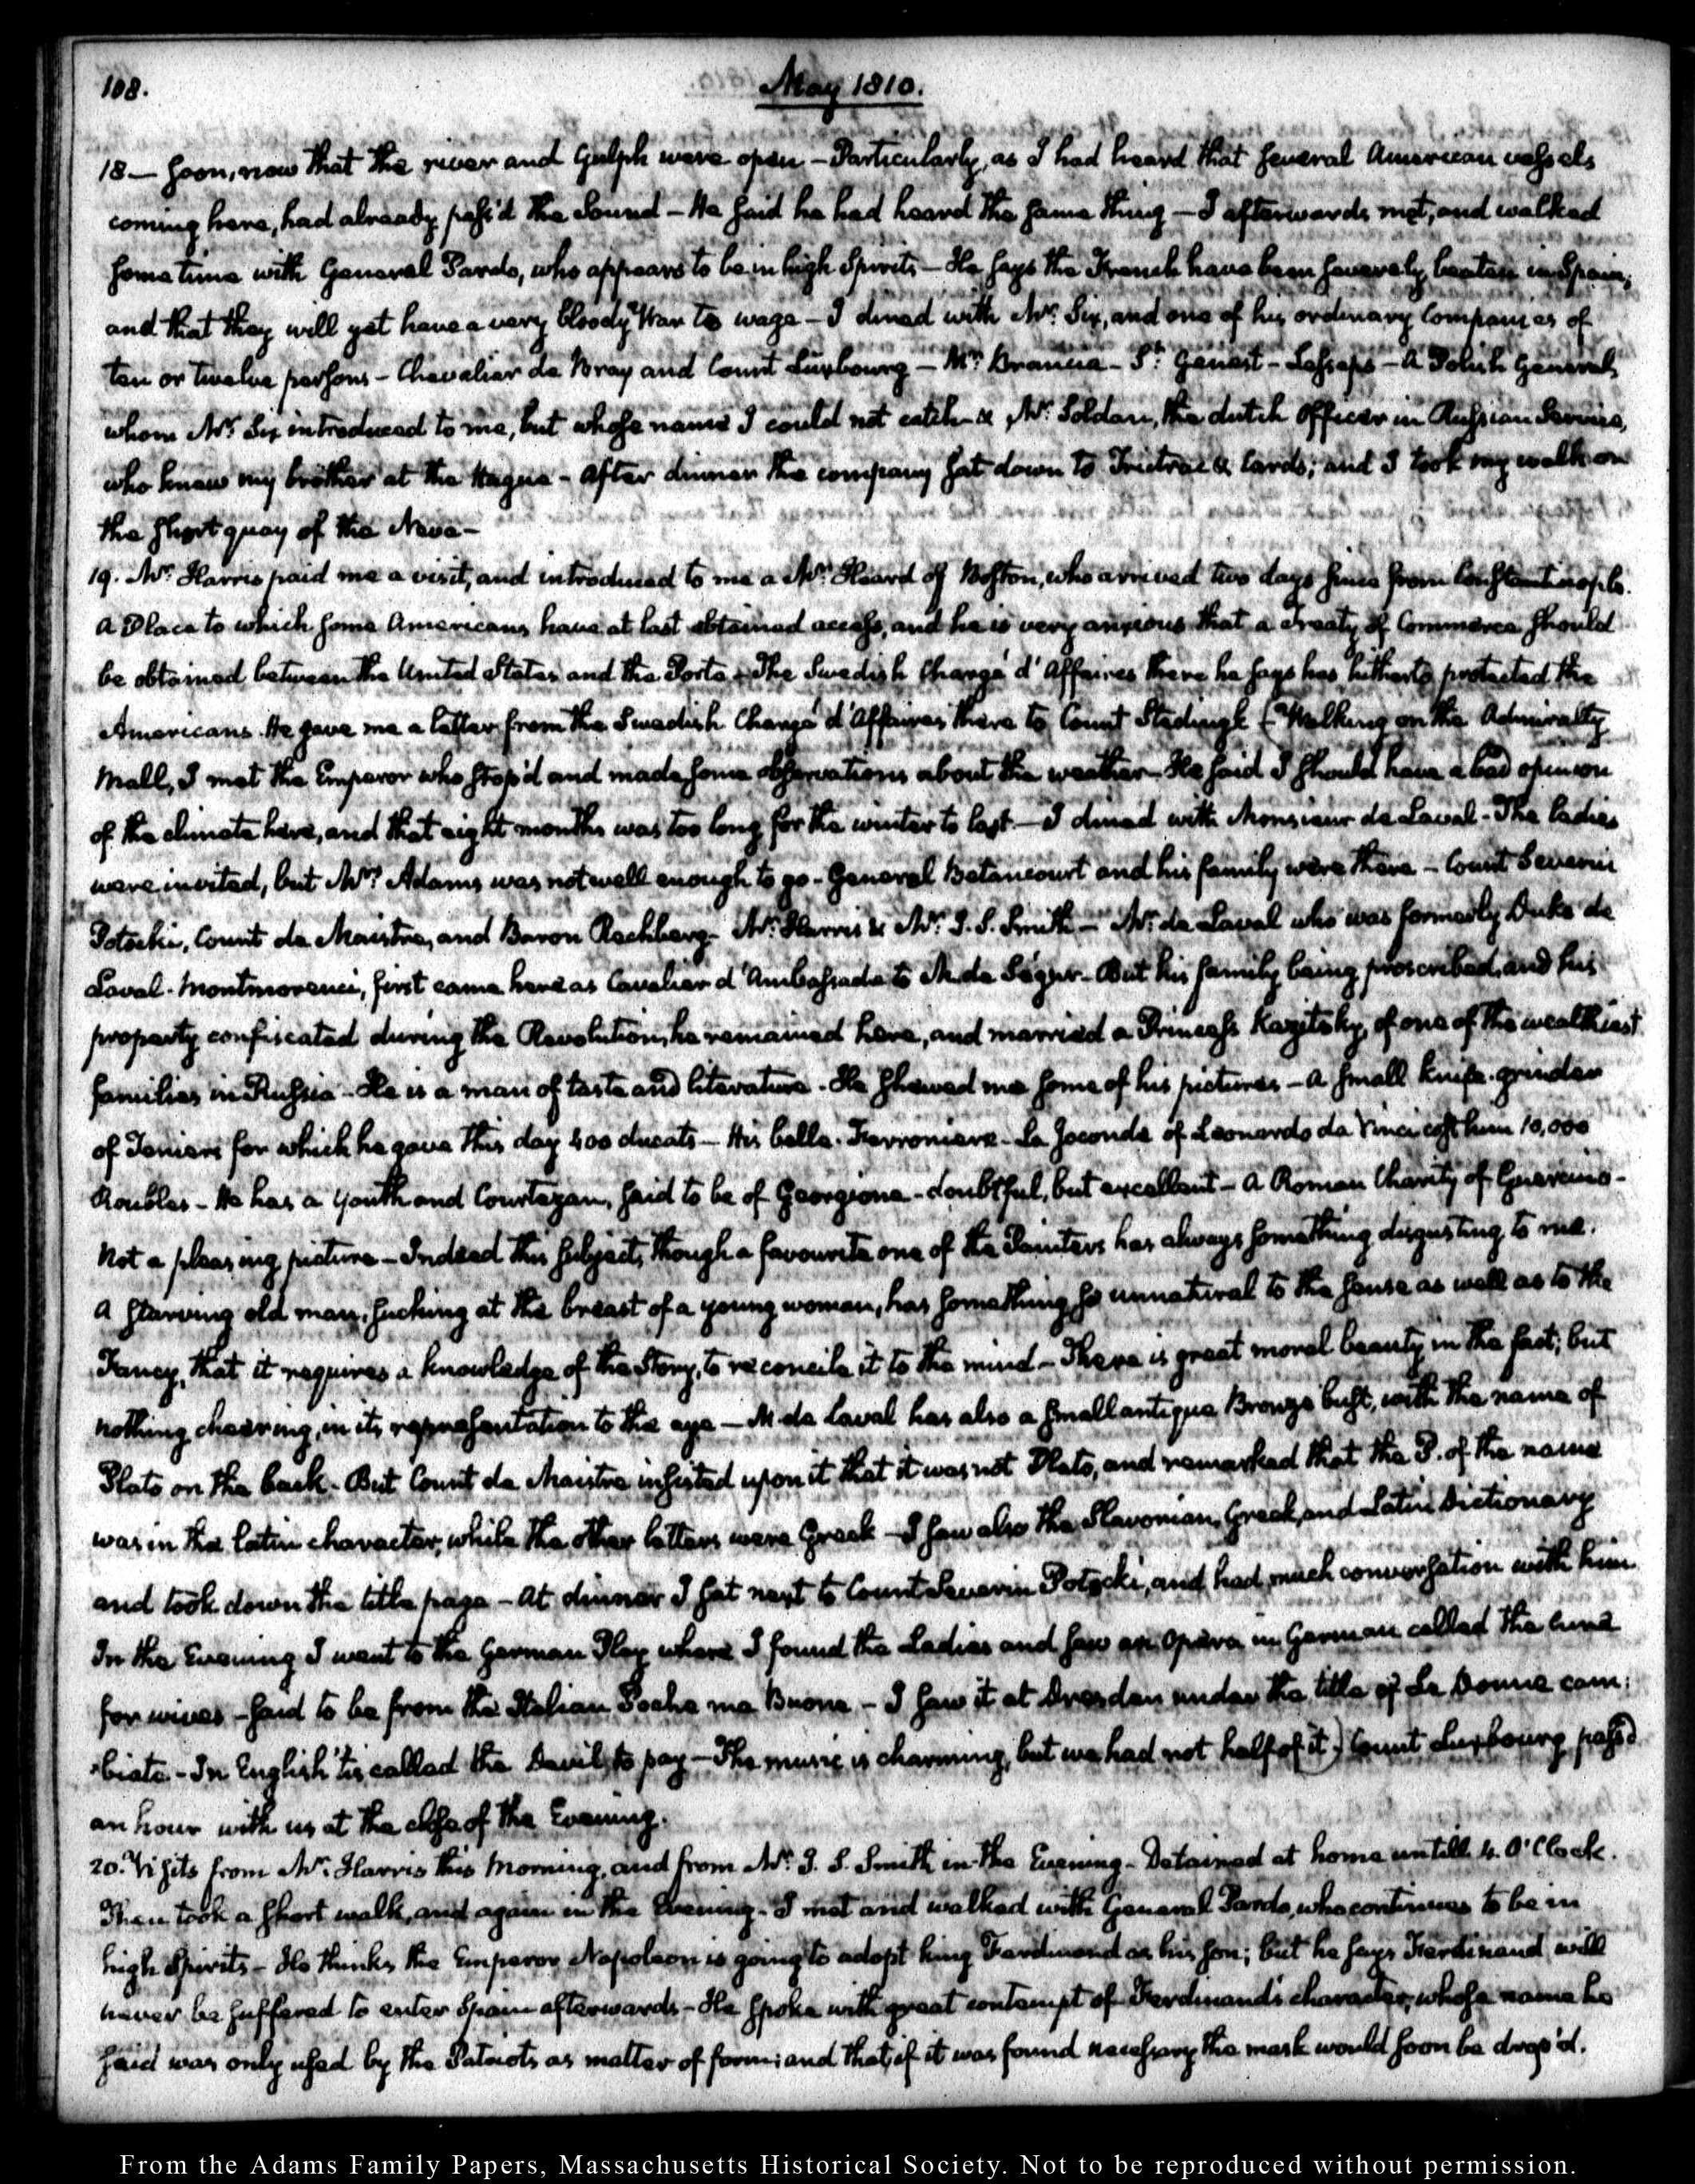 108.
May 1810.
18 — soon, now that the river and Gulph were open — Particularly, as I had heard that several American vessels
coming here, had already pass'd the Sound — He said he had heard the same thing — I afterwards met, and walked
some time with General Pardo, who appears to be in high Spirits — He says the French have been severely beaten in Spain,
and that they will yet have a very bloody War to wage — I dined with Mr. Six, and one of his ordinary Companies of
ten or twelve persons — Chevalier de Bray and Count Luxbourg — Mr. Brancia — St. Genest — Lesseps — A Polish General,
whom Mr. Six introduced to me, but whose name I could not catch & Mr. Soldan, the dutch Officer in Russian Service,
who knew my brother at the Hague — After dinner the company sat down to Trictrac & Cards; and I took my walk on
the short quay of the Neva —
19. Mr. Harris paid me a visit, and introduced to me a Mr. Heard of Boston, who arrived two days since from Constantinople.
A Place to which some Americans have at last obtained access, and he is very anxious that a Treaty of Commerce should
be obtained between the United States and the Porte. The Swedish Chargé d'Affaires there he says has hitherto protected the
Americans. He gave me a letter from the Swedish Chargé d'Affaires there to Count Stedingk (Walking on the Admiralty
Mall, I met the Emperor who stop'd and made some observations about the weather — He said I should have a bad opinion
of the climate here, and that eight months was too long for the winter to last — I dined with Monsieur de Laval — The ladies
were invited, but Mrs. Adams was not well enough to go — General Betancourt and his family were there — Count Severin
Potocki, Count de Maistre, and Baron Rechberg — Mr. Harris & Mr. J. S. Smith — Mr. de Laval who was formerly Duke de
Laval-Montmorenci, first came here as Cavalier d'Ambassade to M. de Ségur — But his family being proscribed, and his
property confiscated during the Revolution, he remained here, and married a Princess Kazitsky, of one of the wealthiest
families in Russia — He is a man of taste and literature. He shewed me some of his pictures — A small knife-grinder
of Teniers for which he gave this day 400 ducats — His belle-Ferroniere — La Joconde of Leonardo da Vinci cost him 10,000
Roubles — He has a Youth and Courtezan, said to be of Georgione — doubtful, but excellent — A Roman Charity of Guercino —
Not a pleasing picture — Indeed this subject, though a favourite one of the Painters has always something disgusting to me.
A starving old man, sucking at the breast of a young woman, has something so unnatural to the sense as well as to the
Fancy, that it requires a knowledge of the Story, to reconcile it to the mind — There is great moral beauty in the fact; but
nothing cheering, in its representation to the eye — M. de Laval has also a small antique Bronze bust, with the name of
Plato on the back — But Count de Maistre insisted upon it that it was not Plato, and remarked that the P. of the name
was in the Latin character, while the other letters were Greek — I saw also the Slavonian, Greek, and Latin Dictionary
and took down the title page — At dinner I sat next to Count Severin Potocki, and had much conversation with him.
In the Evening I went to the German Play where I found the Ladies and saw an Opera in German called the cure
for wives — said to be from the Italian Poche ma Buone — I saw it at Dresden under the title of Le Donne cam:
:biate — In English 'tis called the Devil to pay — The music is charming, but we had not half of it) Count Luxbourg pass'd
an hour with us at the close of the Evening.
20. Visits from Mr. Harris this Morning, and from Mr. J. S. Smith in the Evening — Detained at home untill 4. O'Clock.
Then took a short walk, and again in the Evening — I met and walked with General Pardo, who continues to be in
high Spirits — He thinks the Emperor Napoleon is going to adopt king Ferdinand as his son; but he says Ferdinand will
never be suffered to enter Spain afterwards — He spoke with great contempt of Ferdinand's character, whose name he
said was only used by the Patriots as matter of form; and that, if it was found necessary the mask would soon be drop'd.
From the Adams Family Papers, Massachusetts Historical Society. Not to be reproduced without permission.